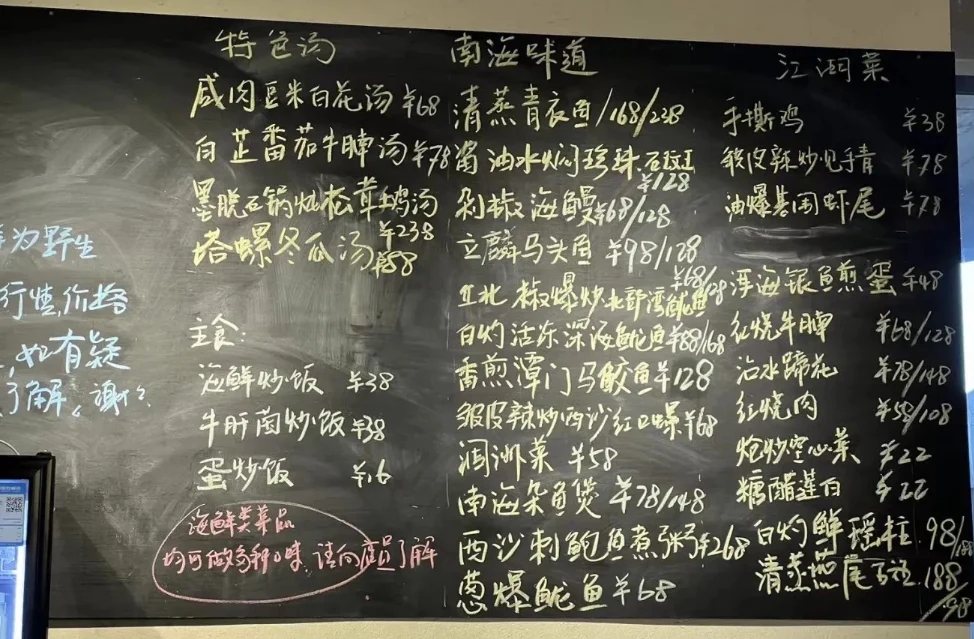 为野生
行情价格
也有疑
了解,谢谢
特色汤
咸肉豆米白花汤 ¥68
白芷番茄牛腩汤 ¥78
墨脱石锅炖松茸土鸡汤
¥238
塔螺冬瓜汤 ¥88
主食:
海鲜炒饭 ¥38
牛肝菌炒饭 ¥38
蛋炒饭 ¥16
海鲜类菜品
均可做多种口味,请向店员了解
南海味道
清蒸青衣鱼/168/238
酱油水焖珍珠石斑
¥128
剁椒海鳗 ¥68/128
立麟马头鱼 ¥98/128
豇北椒爆炒北部湾鱿鱼
¥68/128
白灼活冻深海鱿鱼 ¥88/168
香煎潭门马鲛鱼 ¥128
皱皮辣炒西沙红口螺 ¥68
涠洲菜 ¥58
南海杂鱼煲 ¥78/148
西沙刺鲍鱼煮粥 ¥268
葱爆鱿鱼 ¥68
江湖菜
手撕鸡 ¥38
皱皮辣炒见手青 ¥78
油爆基围虾尾 ¥78
浮海银鱼煎蛋 ¥48
红烧牛腩 ¥68/128
沾水蹄花 ¥78/148
红烧肉 ¥58/108
炝炒空心菜 ¥22
糖醋莲白 ¥22
白灼鲜瑶柱 98/188
清蒸燕尾 188/98